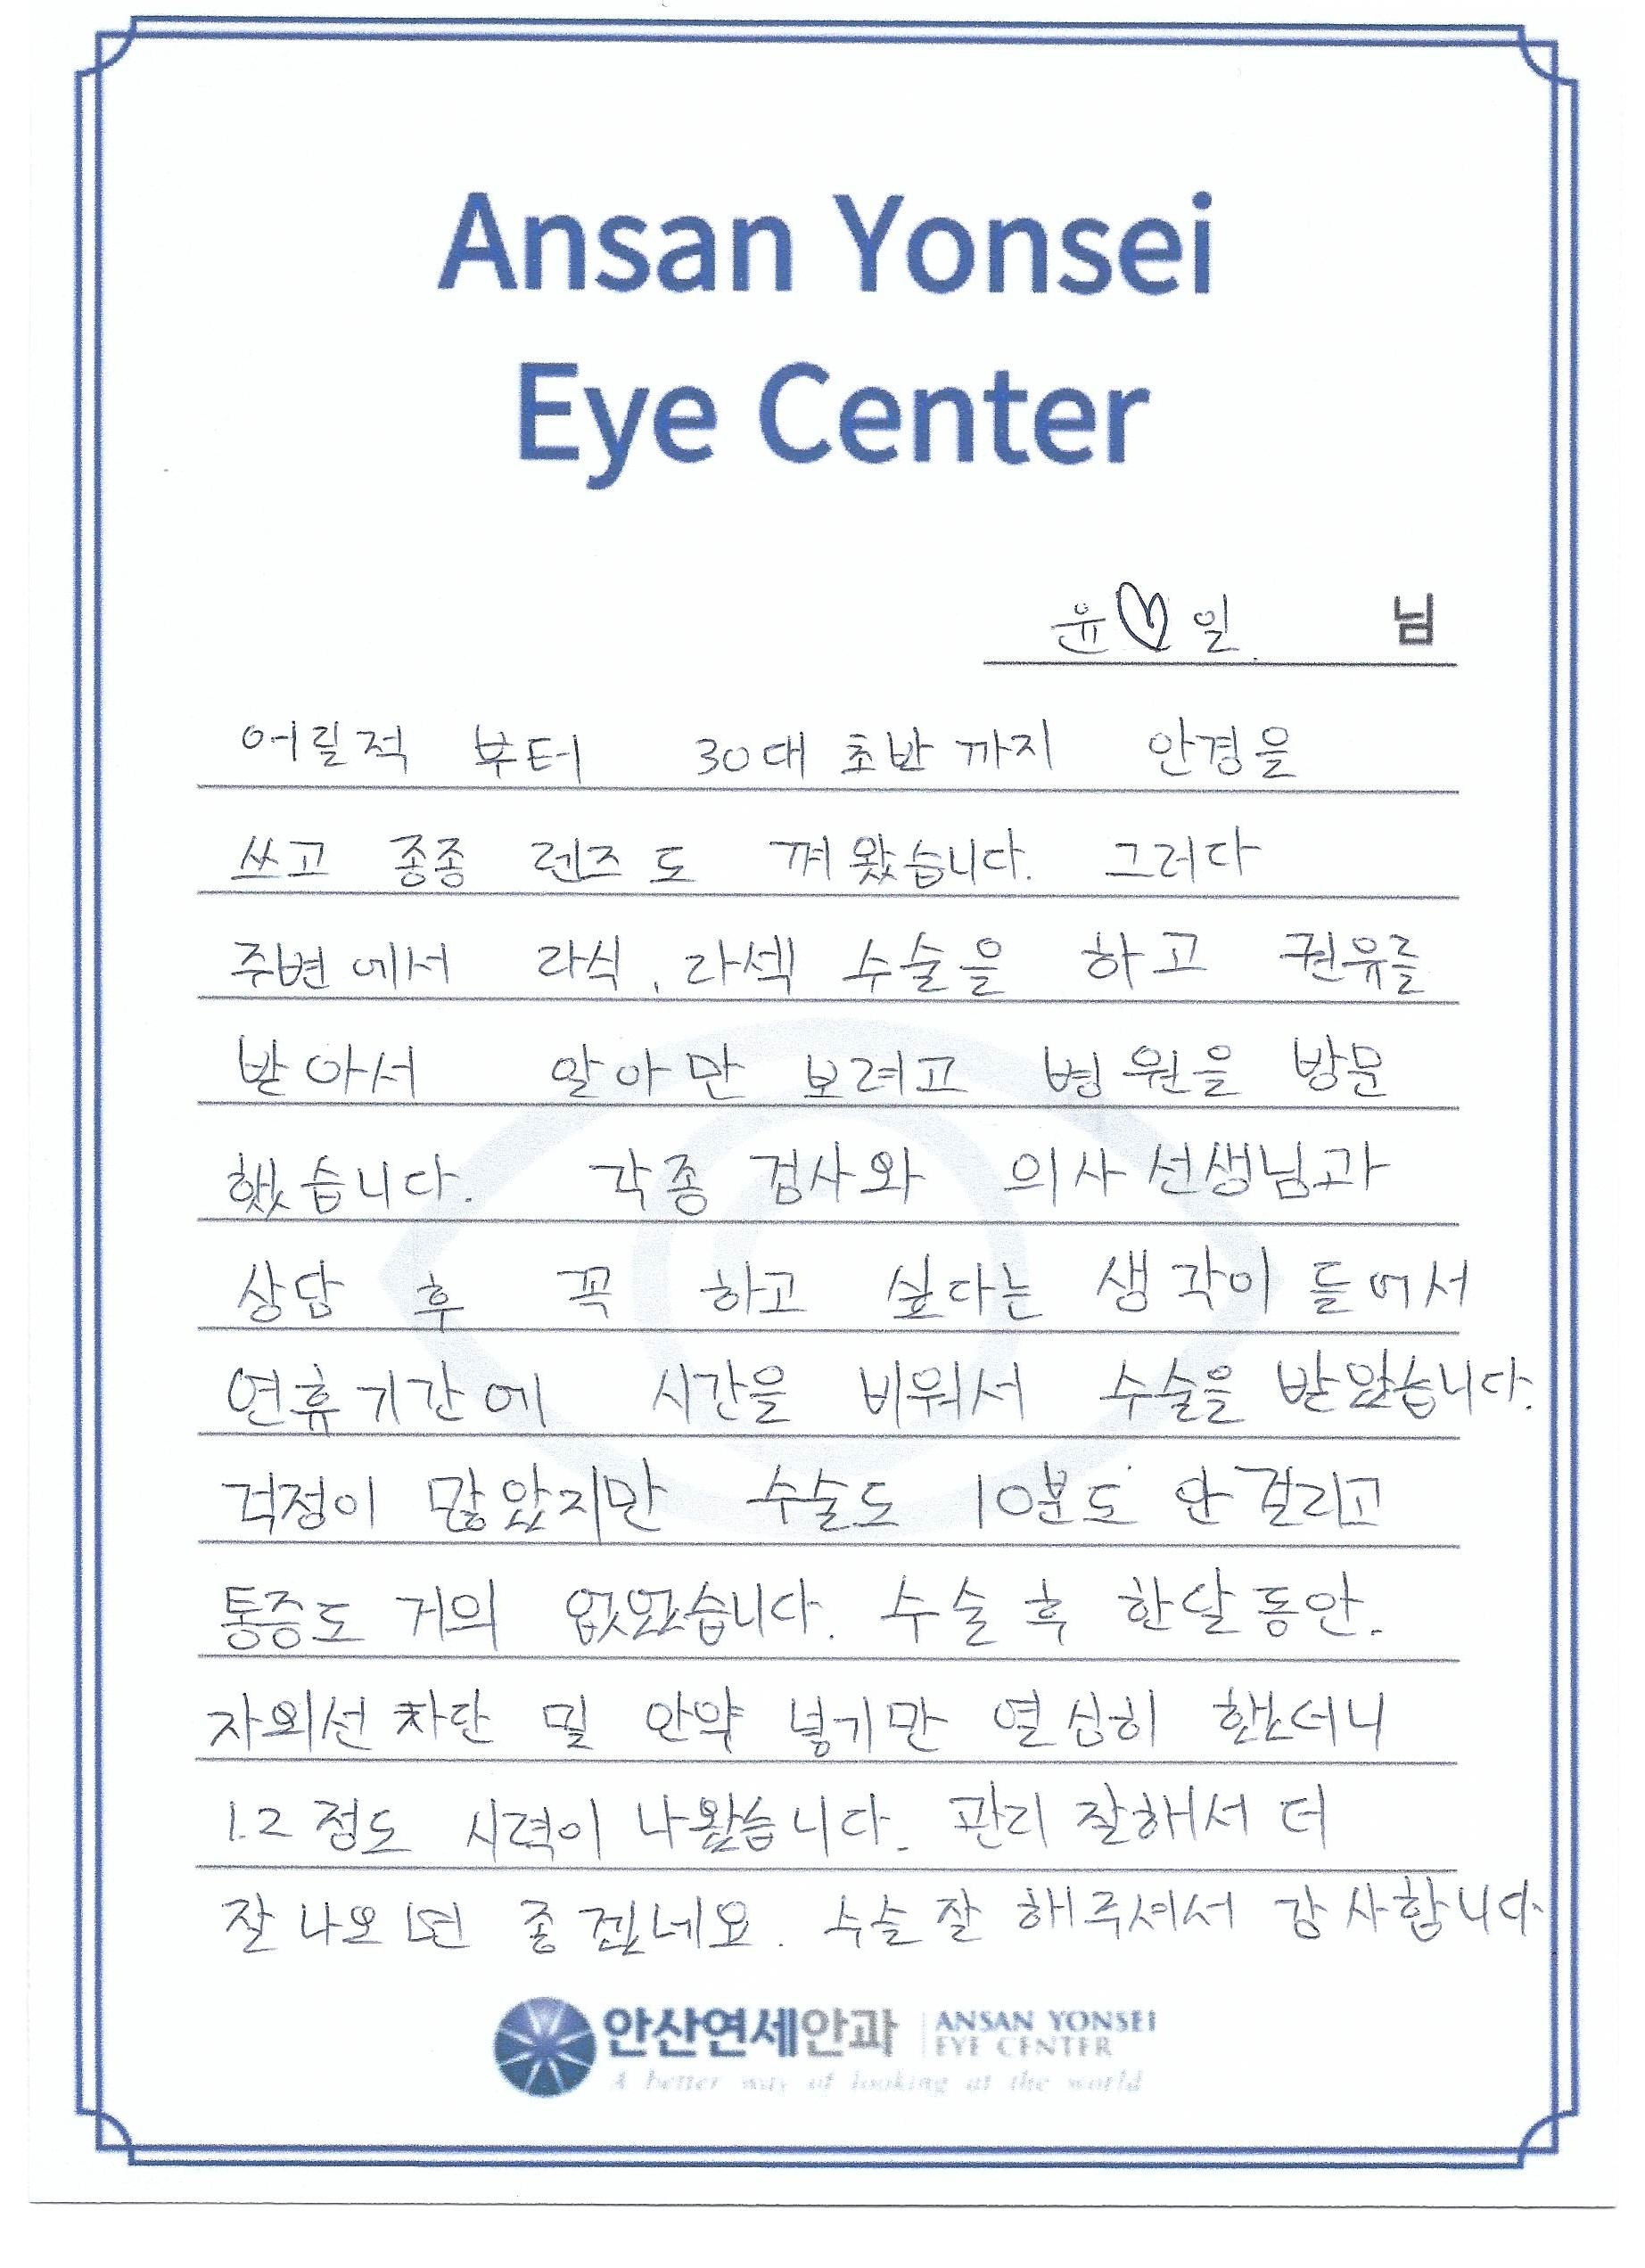 Ansan Yonsei
Eye Center
윤♡일. 님
어릴적 부터 30대 초반 까지 안경을
쓰고 종종 렌즈도 껴왔습니다. 그러다
주변에서 라식, 라섹 수술을 하고 권유를
받아서 알아만 보려고 병원을 방문
했습니다. 각종 검사와 의사 선생님과
상담 후 꼭 하고 싶다는 생각이 들어서
연휴기간에 시간을 비워서 수술을 받았습니다.
걱정이 많았지만 수술도 10분도 안걸리고
통증도 거의 없었습니다. 수술 후 한달동안.
자외선 차단 및 안약 넣기만 열심히 했더니
1.2 정도 시력이 나왔습니다. 관리 잘해서 더
잘 나오면 좋겠네요. 수술 잘 해주셔서 감사합니다.
안산연세안과 ANSAN YONSEI
EYE CENTER
A better way of looking at the world